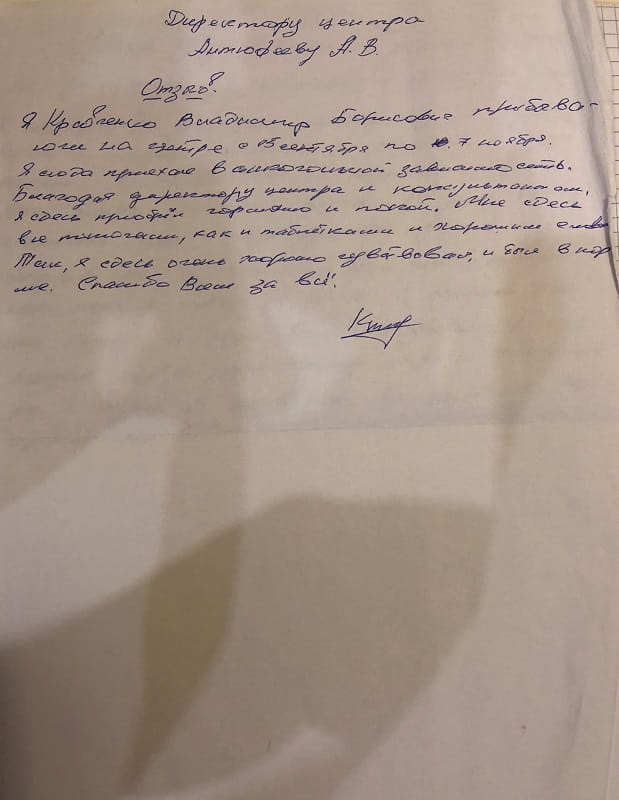 Директору центра
Антюфееву А. В.
Отзыв.
Я Кравченко Владимир Борисович пребева-
юсь на центре с 15 сентября по 7 ноября.
Я сюда приехал в алкогольной зависимость.
Благодоя директору центра и консультантом,
я здесь приобрёл гормонию и покой. Мне здесь
все помогали, как и таблетками и хорошим словом
Так, я здесь очень хорошо чувствовал, и был в нор
ме. Спасибо Вам за всё!